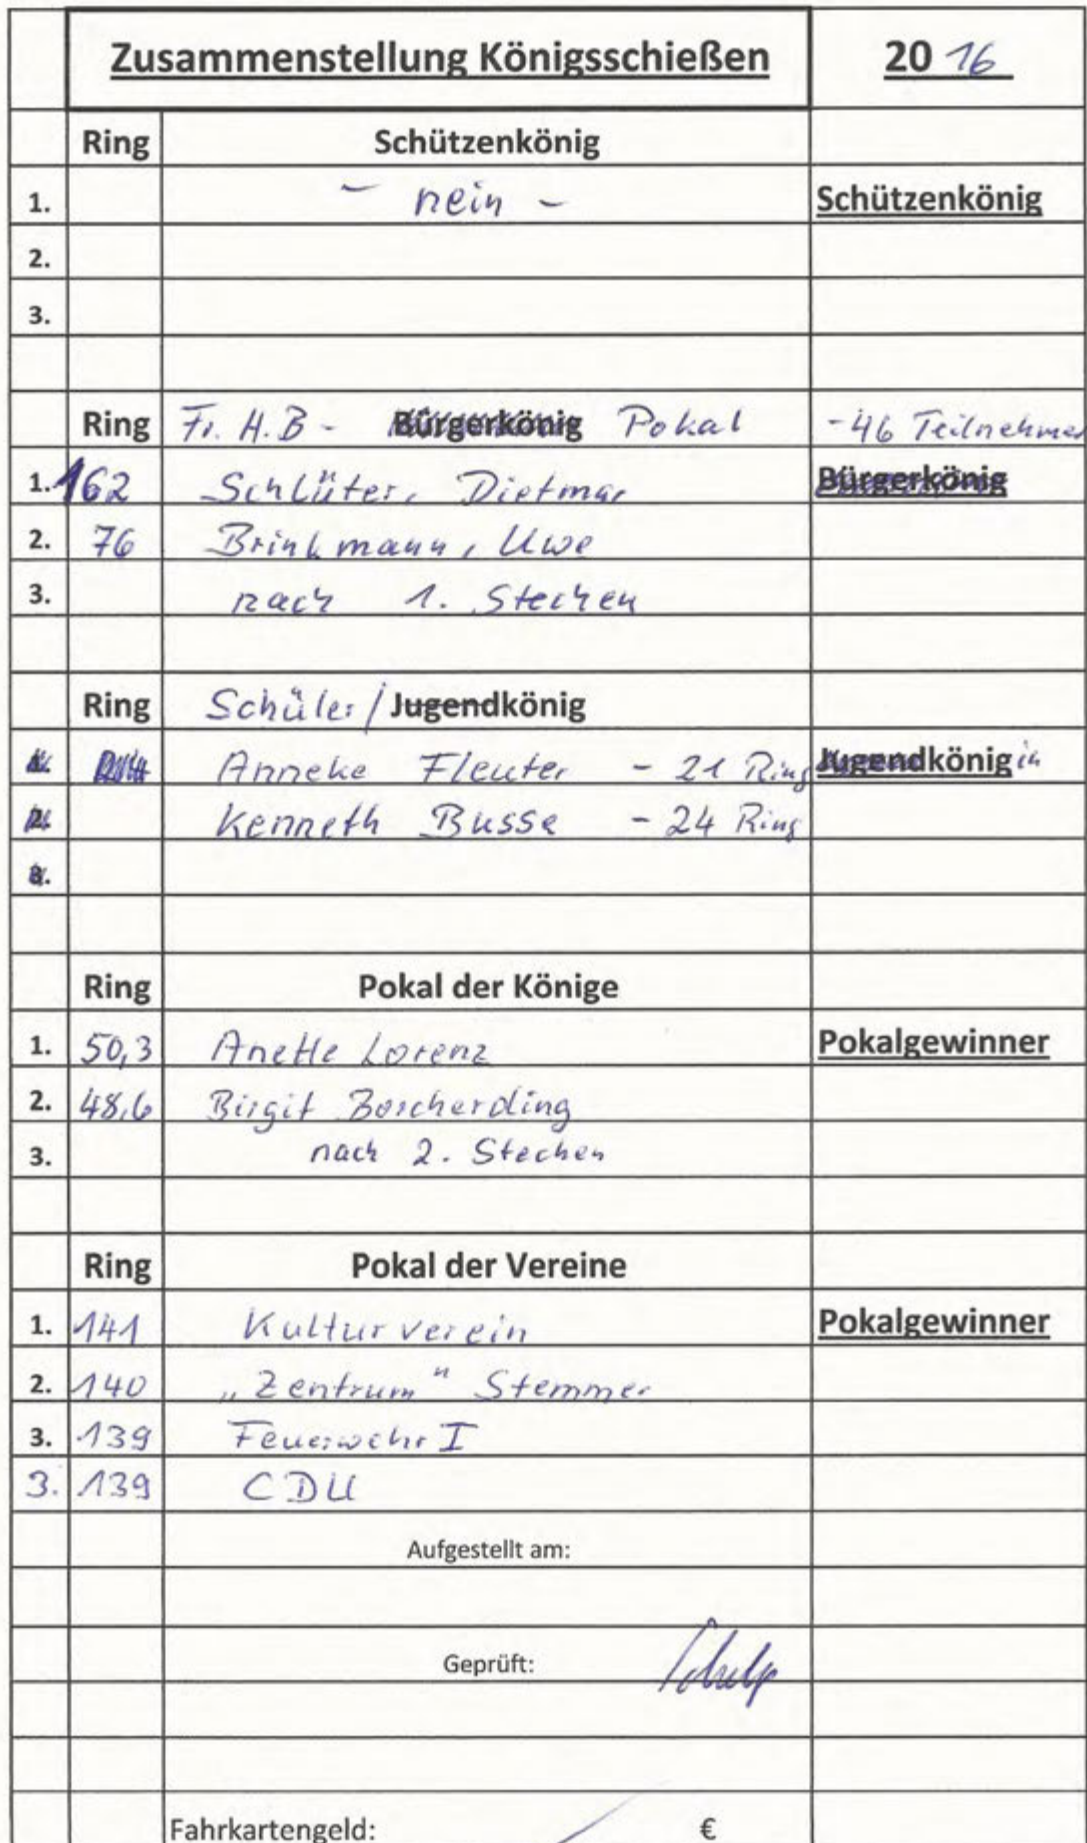 Zusammenstellung Königsschießen 20 16
Ring Schützenkönig
1. - nein - Schützenkönig
2.
3.
Ring Fr. H. B - Bürgerkönig Pokal - 46 Teilnehmer
1. 162 Schlüter, Dietmar Bürgerkönig
2. 76 Brinkmann, Uwe
3. nach 1. Stechen
Ring Schüler / Jugendkönig
1. Anneke Fleuter - 21 Ring Jugendkönigin
2. Kenneth Busse - 24 Ring
3.
Ring Pokal der Könige
1. 50,3 Anette Lorenz Pokalgewinner
2. 48,6 Birgit Borcherding
3. nach 2. Stechen
Ring Pokal der Vereine
1. 141 Kulturverein Pokalgewinner
2. 140 „Zentrum" Stemmer
3. 139 Feuerwehr I
3. 139 CDU
Aufgestellt am:
Geprüft:
Fahrkartengeld: €